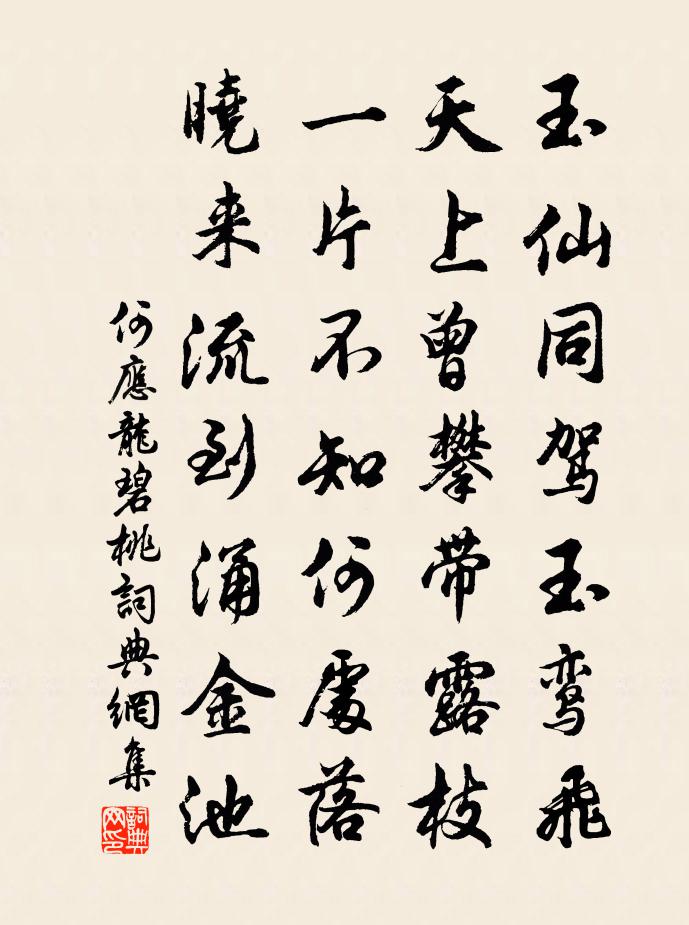 玉仙同驾玉鸾飛
天上曾攀带露枝
一片不知何處落
曉来流到涌金池
何應龍碧桃詞典網集
詞典网印